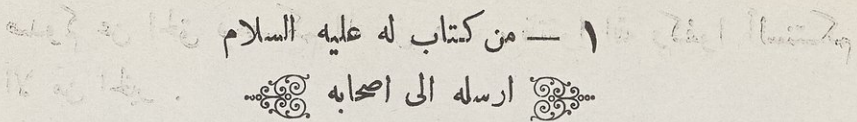 ١ — من كتاب له عليه السلام
ارسله الى اصحابه